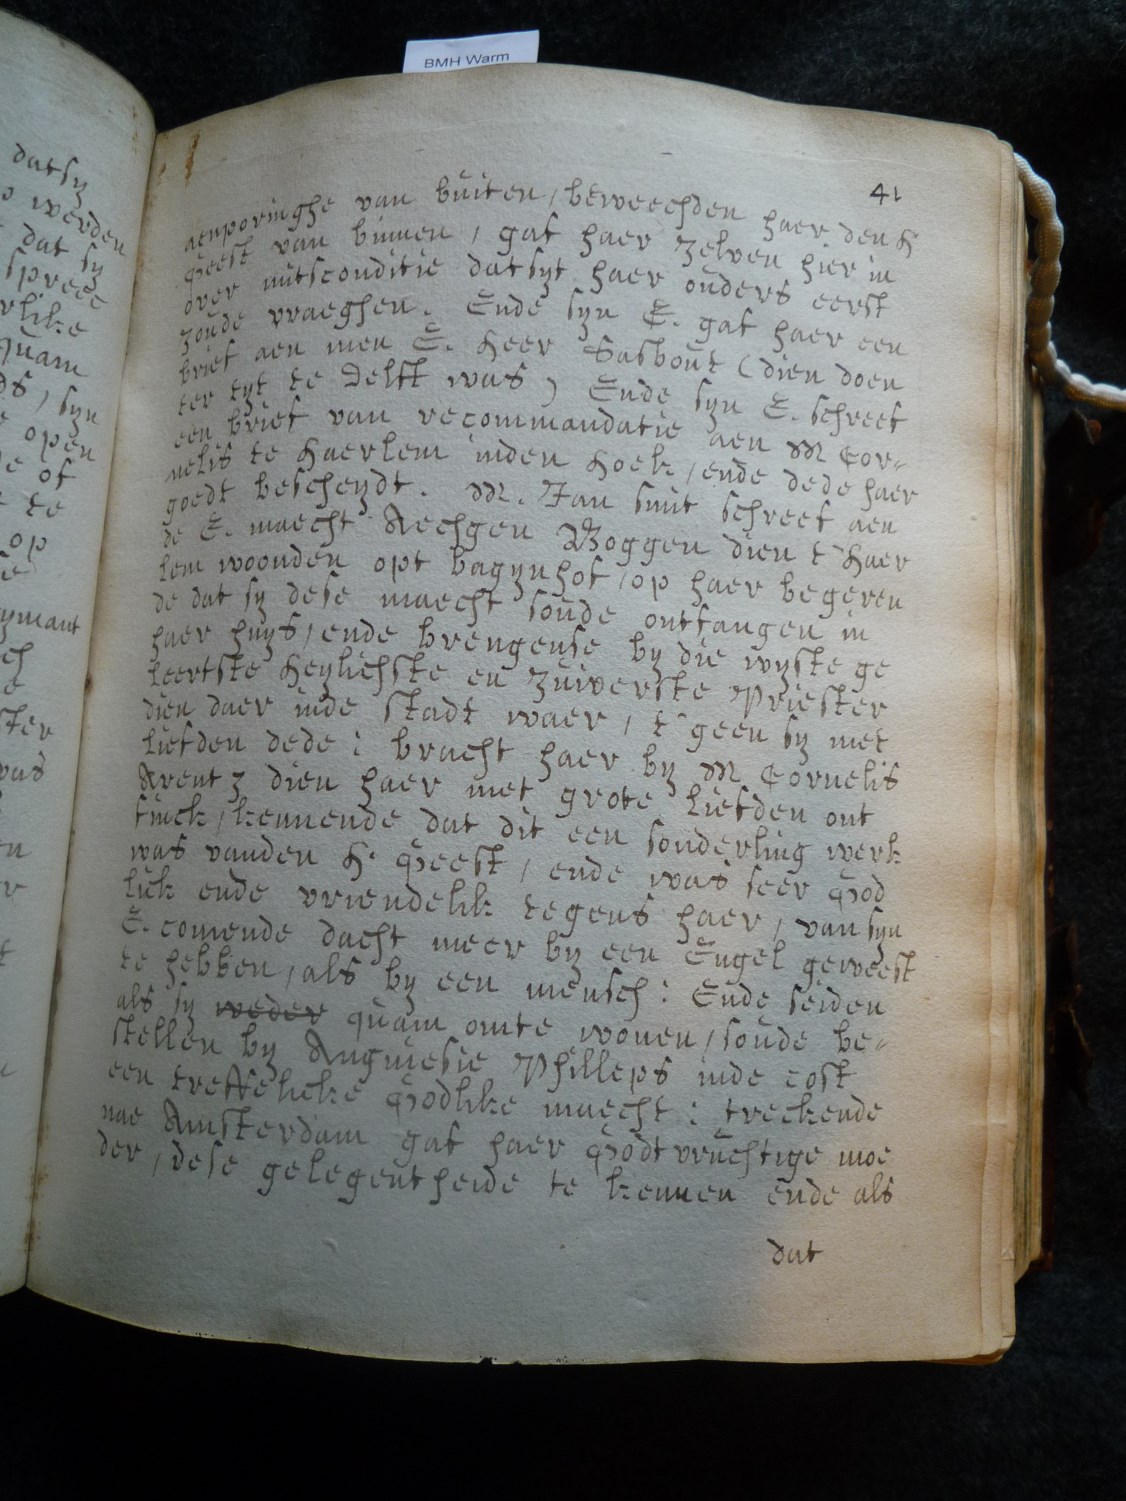 BMH Warm
41
datsy
werden
dat sy
spreec
rlike
quam
ds, syn
open
of
te
op
ymant
ch
ster
was
aenporinghe van buiten, beweechden haer den H
Geest van binnen, gaf haer zelven hier in
over mitsconditie datsyt haer ouders eerst
zoude vraeghen. Ende syn E. gaf haer een
brief aen men E. Heer Sasbout (dien doen
ter tyt te Delft was) Ende syn E. schreef
een brief van recommandatie aen M Cor-
nelis te Haerlem inden Hoek, ende dede haer
goedt bescheydt. M. Jan smit schreef aen
de E. maecht Aechgen Woggen dien t Haer
lem woonden opt bagynhof, op haer begeren
de dat sy dese maecht soude ontfangen in
haer huys, ende brengense by die wyste ge
leertste Heylichste en zuiverste Priester
dien daer inde stadt waer, t geen sy met
liefden dede: bracht haer by M Cornelis
Arentz dien haer met grote liefden ont
finck, kennende dat dit een sonderling werk
was vanden H. Geest, ende was seer God
lick ende vriendelik tegens haer, van syn
E. comende dacht meer by een Engel geweest
te hebben, als by een mensch: Ende seiden
als sy weder quam omte wonen, soude be-
stellen by Angniesie Philleps inde cost
een treffelicke Godlike maecht: treckende
nae Amsterdam gaf haer Godtvruchtige moe
der, dese gelegentheide te kennen ende als
dat